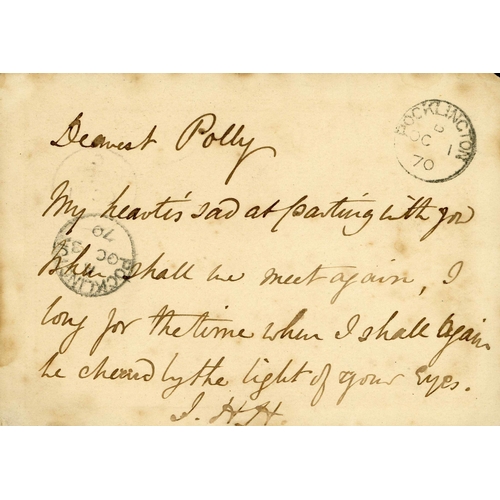 Dearest Polly
POCKLINGTON
B
OC 1
70
My heart is sad at parting with you
POCKLINGTON
OC 3
70
When shall we meet again, I
long for the time when I shall again
be cheered by the light of your Eyes.
J. H. H.